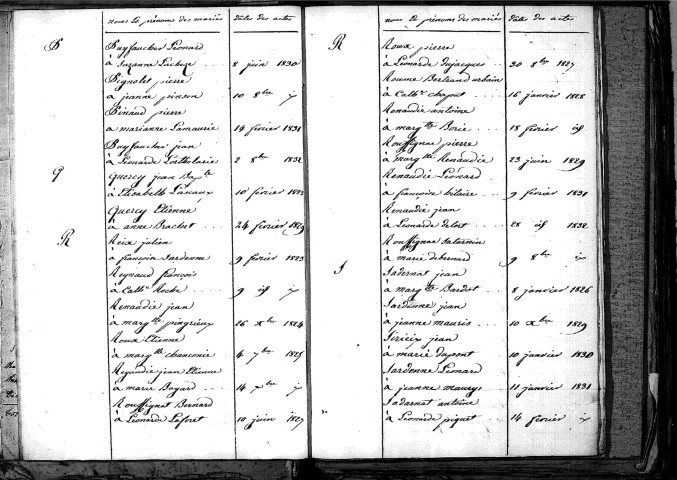 noms et prénoms des mariés dates des actes
P Puyfaucher Léonard
à Suzanne Lacheze 8 juin 1830
Pignolet pierre
à jeanne pinson 10 8bre id
Pinaud pierre
à marianne Lamaurie 14 février 1831
Puyfaucher jean
à Léonarde 2 8bre 1832
Q Quercy jean Bapte
à Elisabeth Lanaux 10 février 1823
Quercy Etienne
à anne Brachet 24 février 1829
R Reix julien
à françoise Sardenne 9 février 1823
Reynaud françois
à Cathe Roche 9 id id
Renaudie jean
à margte pingrieux 26 Xbre 1824
Roux Etienne
à margte 4 7bre 1825
Regaudie jean Etienne
à marie Boyard 14 7bre id
Rouffignat Bernard
à Léonarde Laforet 10 juin 1827
noms et prénoms des mariés dates des actes
R Roux pierre
à Léonarde Dejacques 30 8bre 1827
Roume Bertrand urbain
à Cathe chaput 16 janvier 1828
Renaudie antoine
à margte Borie 18 février id
Rouffignac pierre
à margte Renaudie 23 juin 1829
Renaudie Léonard
à françoise hilaire 9 février 1831
Renaudie jean
à Léonarde delort 28 id 1832
Rouffignac Saturnin
à marie debernard 9 8bre id
S Sadernat jean
à margte Bardot 8 janvier 1826
Sardenne jean
à jeanne mauris 10 Xbre 1829
Sirieix jean
à marie dupont 10 janvier 1830
Sardenne Léonard
à jeanne maury 11 janvier 1831
Sadarnat antoine
à Léonarde piquet 14 février id